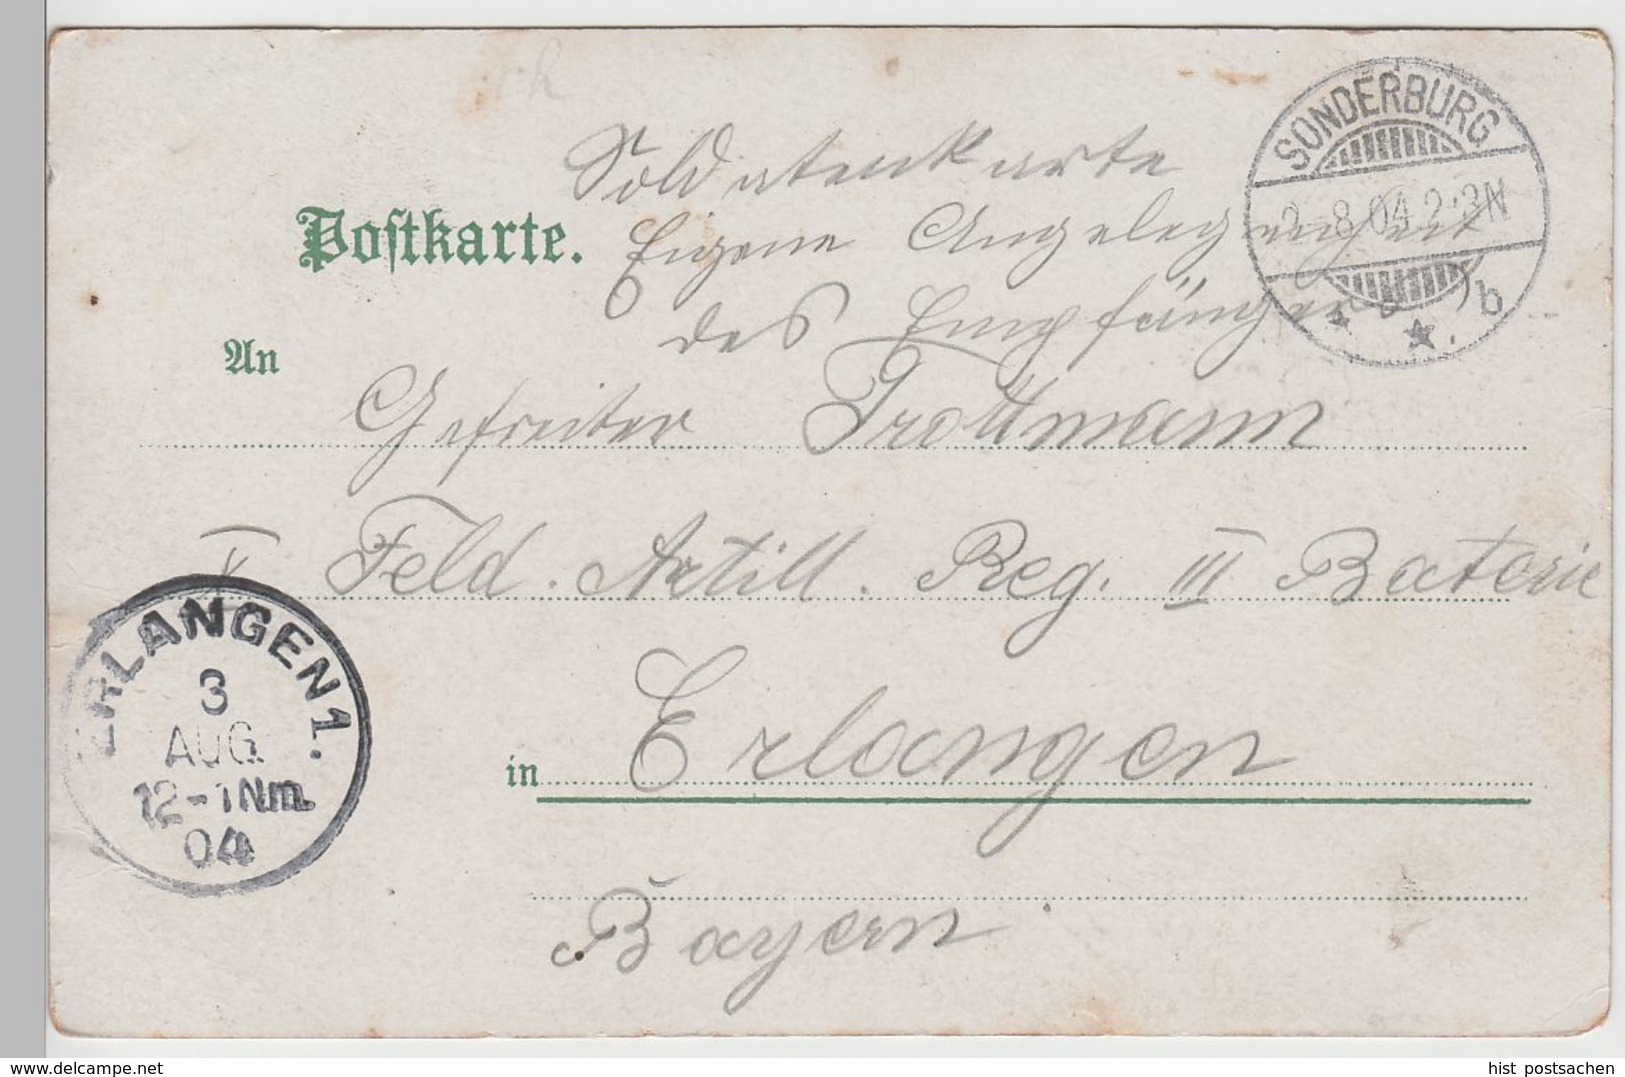 Soldatenkarte
Eigene Angelegenheit
des Empfänger
Postkarte.
SONDERBURG
2.8.04.2-3N
b
An
Gefreiter Trottmann
V Feld. Artill. Reg. III Baterie
ERLANGEN 1.
3
AUG
12-1Nm.
04
in Erlangen
Bayern
delcampe.net
hist postsachen